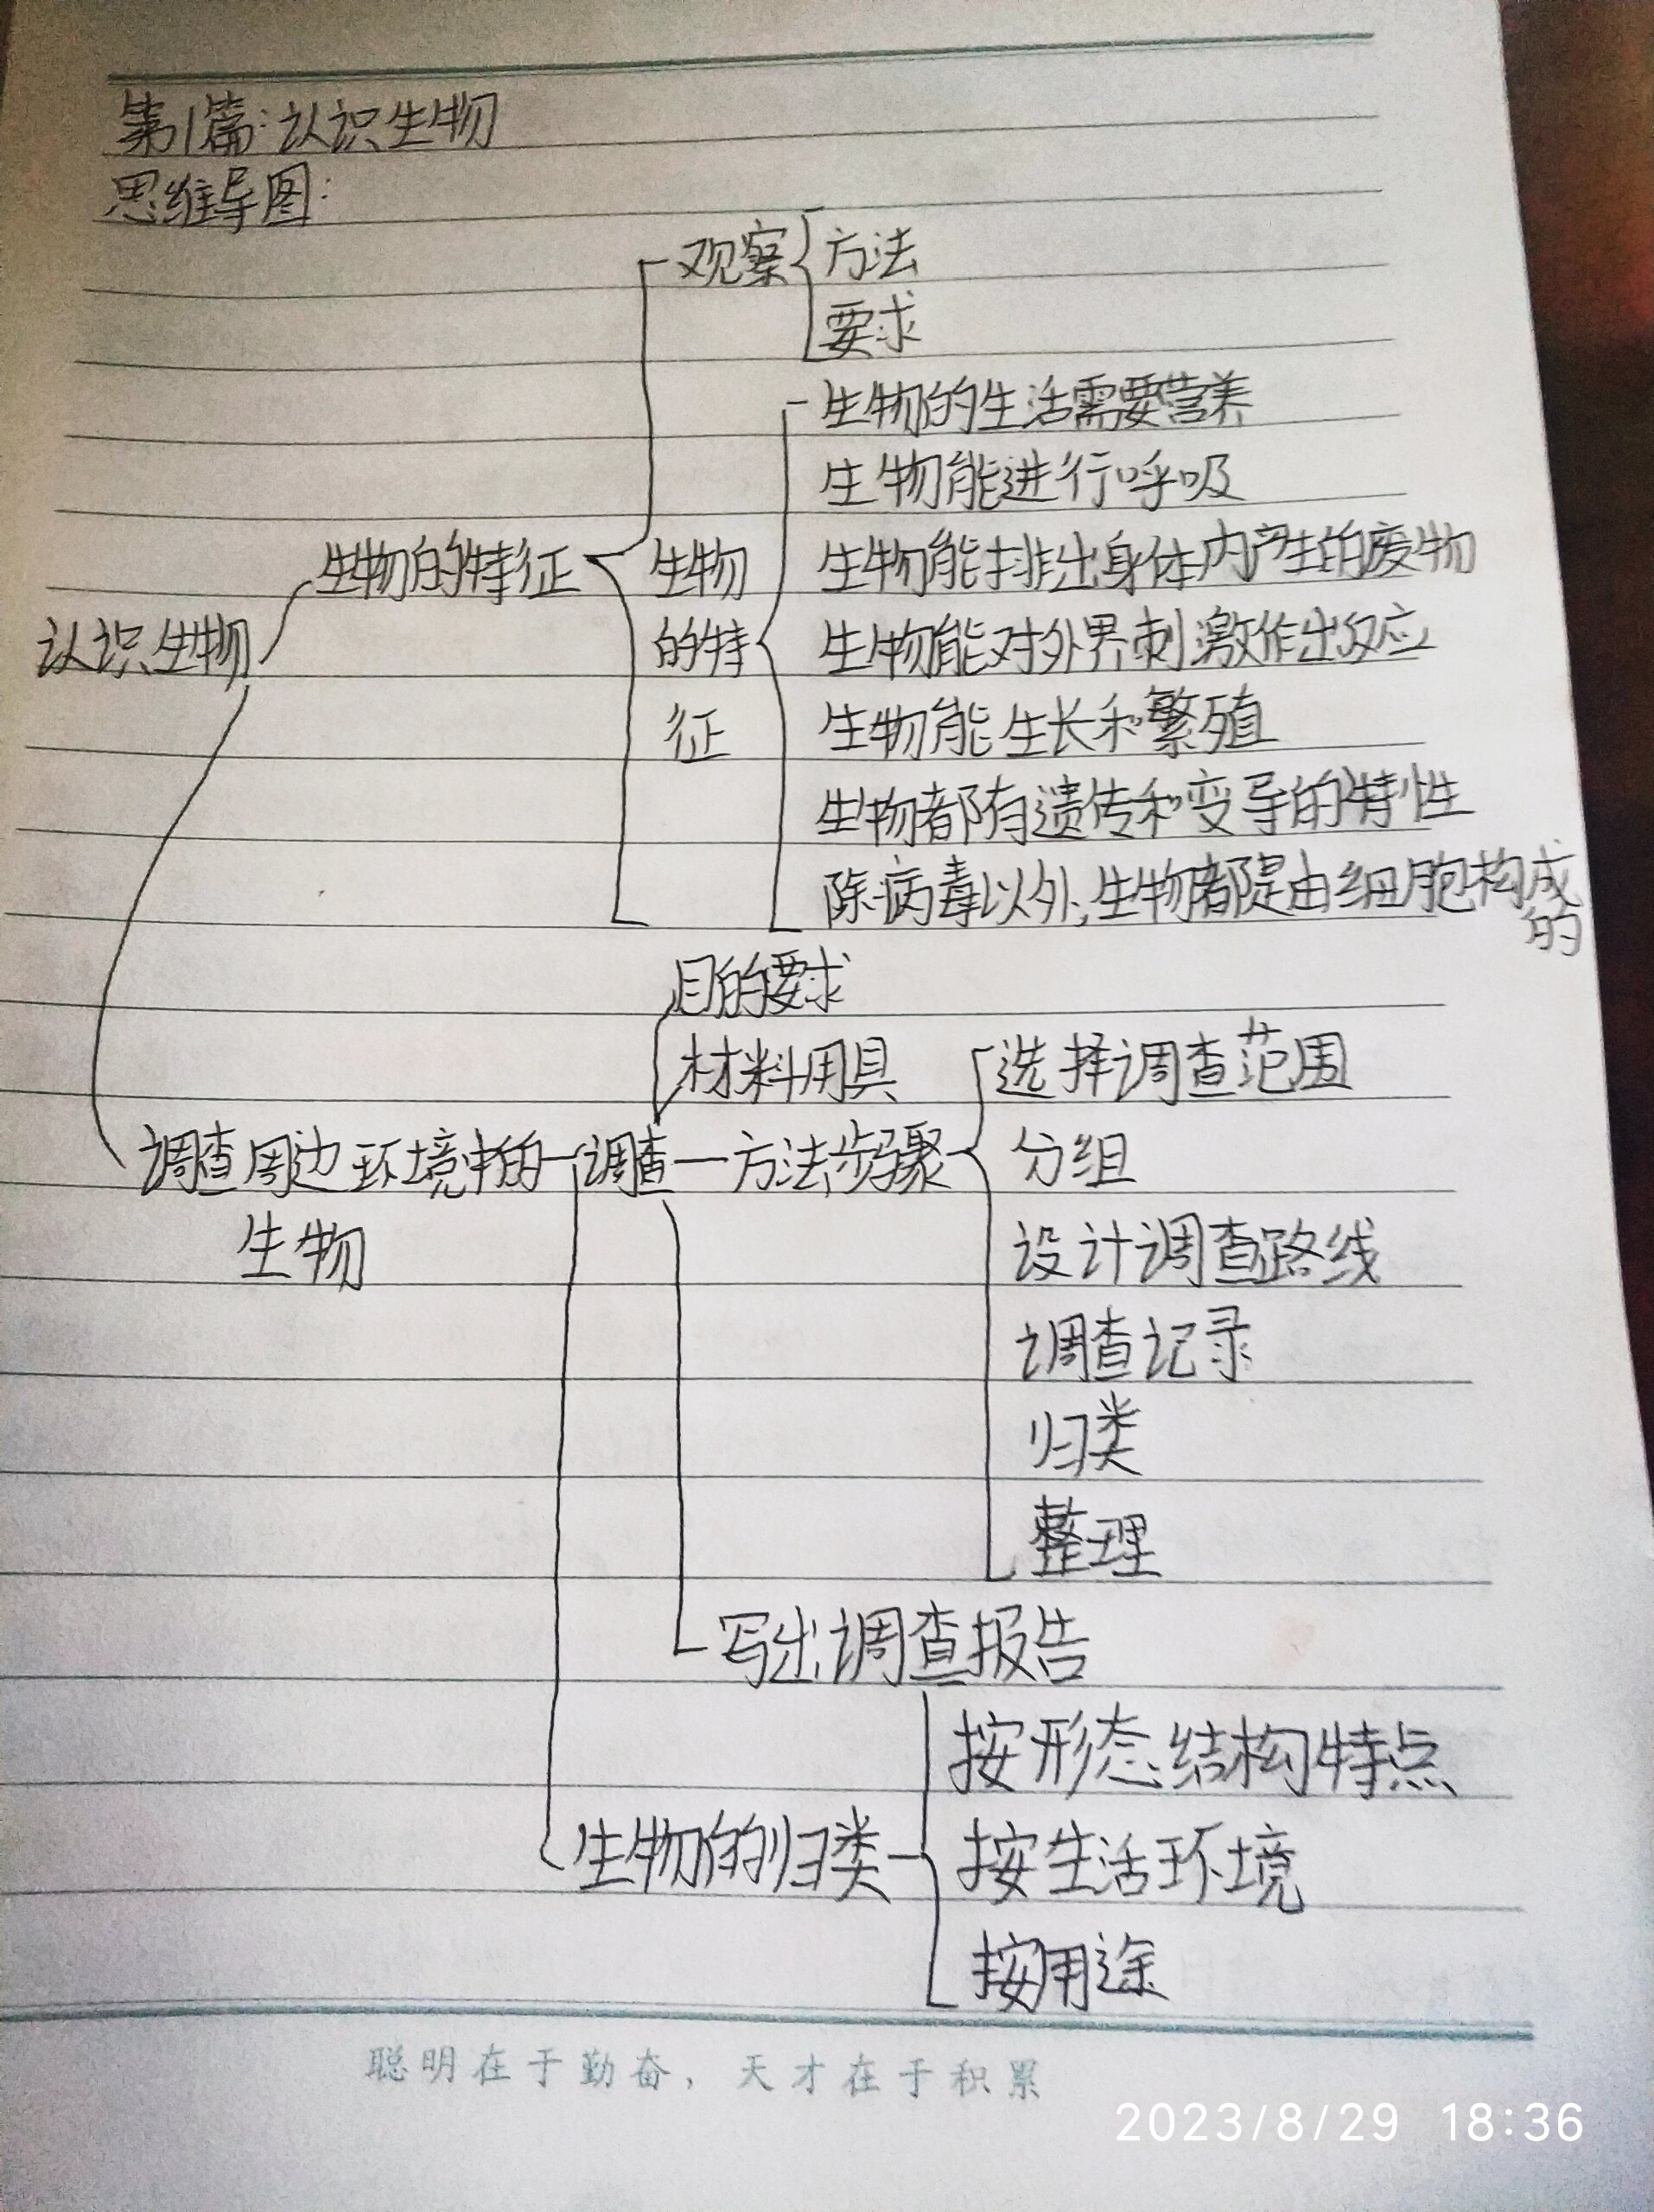 第1篇:认识生物
思维导图:
观察
方法
要求
生物的生活需要营养
生物能进行呼吸
生物的特征
生物
的特
征
生物能排出身体内产生的废物
认识生物
生物能对外界刺激作出反应
生物能生长和繁殖
生物都有遗传和变导的特性
除病毒以外,生物都是由细胞构成
的
目的要求
材料用具
选择调查范围
调查周边环境中的
生物
调查
方法步骤
分组
设计调查路线
调查记录
归类
整理
写出调查报告
按形态结构特点
生物的归类
按生活环境
按用途
聪明在于勤奋，天才在于积累
2023/8/29 18:36